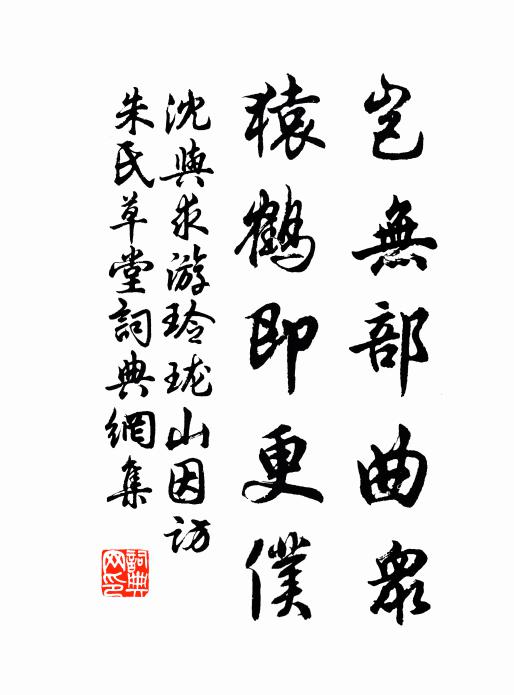 豈無部曲眾
猿鶴即更僕
沈與求游玲瓏山因訪
朱氏草堂詞典網集
詞典网印